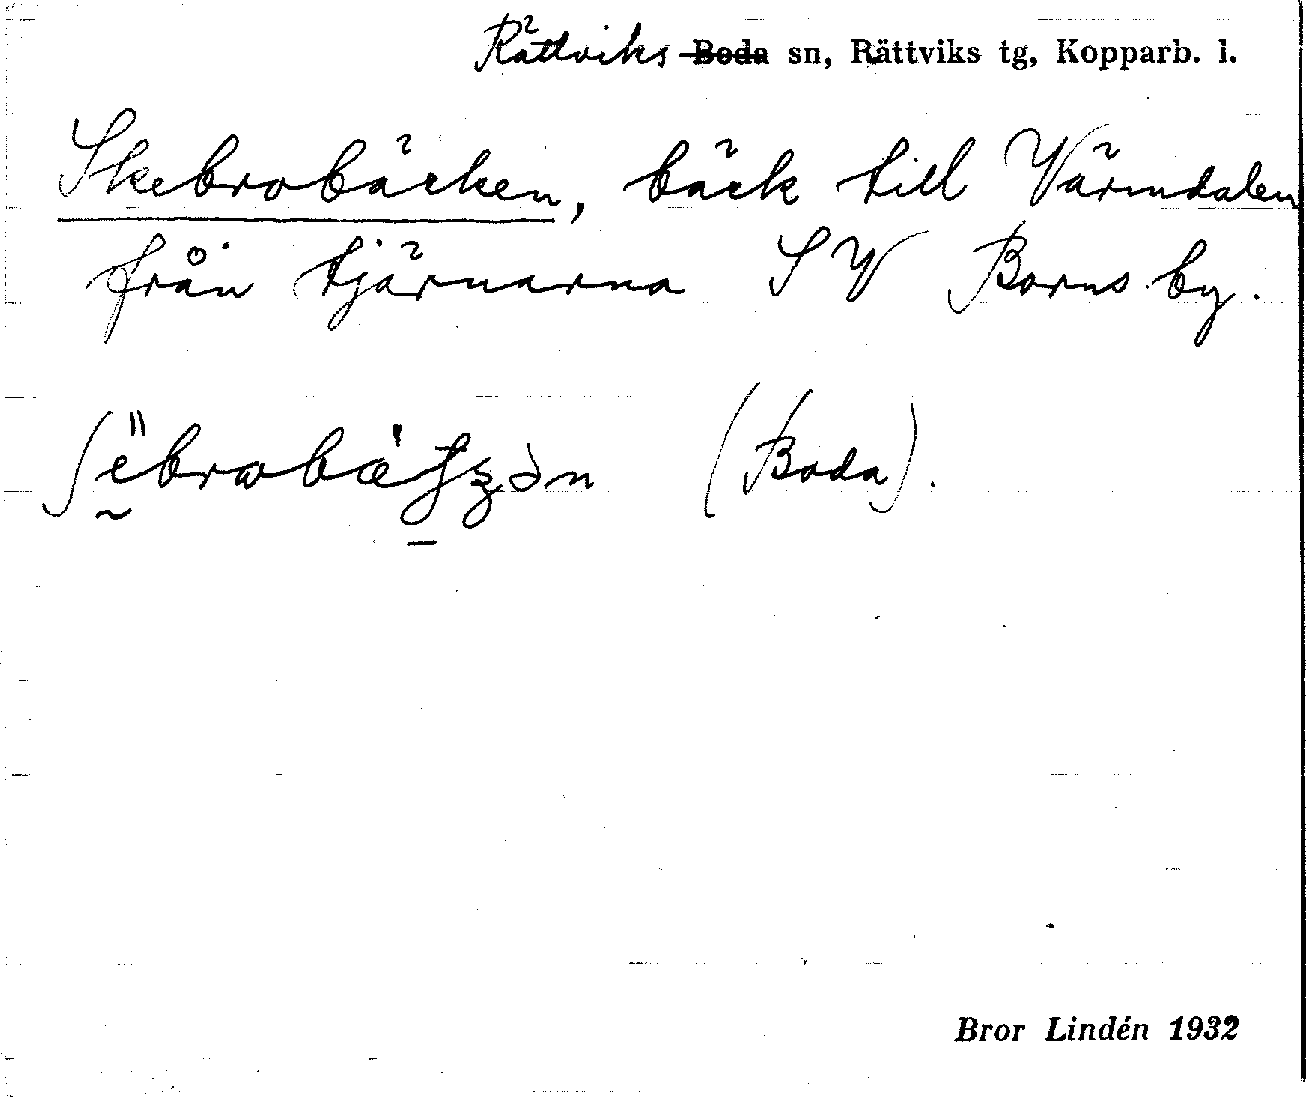 Rättviks ~~Boda~~ sn, Rättviks tg, Kopparb. l.
Skebrobäcken, bäck till Värmdalen
från tjärnarna SV Borns by.
(Boda).
Bror Lindén 1932